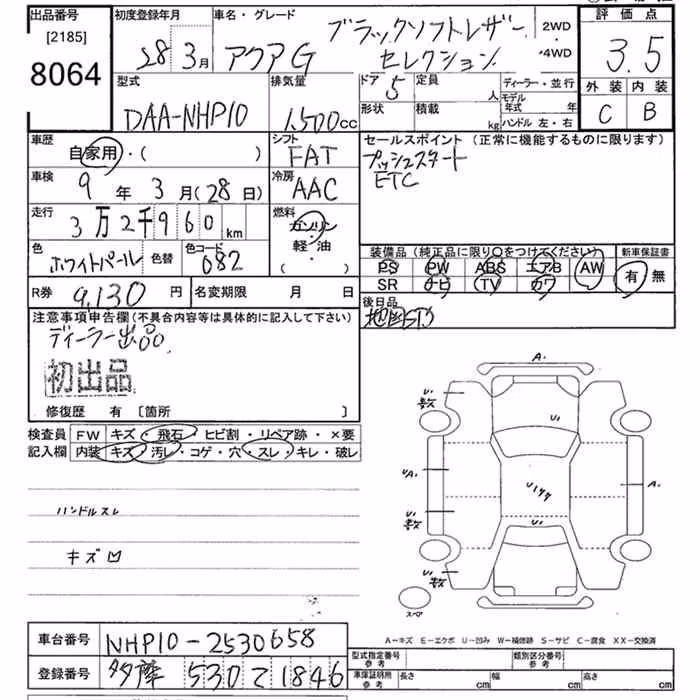 出品番号 初度登録年月 車名・グレード ブラックソフトレザー 2WD 評価点
[2185] 28年3月 アクアG セレクション ・4WD 3.5
8064 外装 内装
型式 排気量 ドア 5 定員 人 ディーラー・並行 C B
DAA-NHP10 1,500cc 形状 積載 kg モデル年式 年
ハンドル 左・右
車歴 自家用・( ) シフト FAT セールスポイント (正常に機能するものに限ります)
プッシュスタート
ETC
車検 9年3月(28日) 冷房 AAC
走行 3万2千960km 燃料 ガソリン・軽油・( )
色 ホワイトパール 色替 色コード 082
装備品 (純正品に限り○をつけてください) 新車保証書
PS PW ABS エアB AW 有 無
SR ナビ TV カワ
R券 9,130円 名変期限 月 日
後日品
注意事項申告欄(不具合内容等は具体的に記入して下さい)
ディーラー出品
初出品
修復歴 有 [箇所 ]
検査員 FW キズ・飛石・ヒビ割・リペア跡・×要
記入欄 内装 キズ・汚レ・コゲ・穴・スレ・キレ・破レ
ハンドルスレ
キズ凹
A.
U.
U.
UA.
A.
U.
U.
A-キズ E-エクボ U-凹み W-補修跡 S-サビ C-腐食 XX-交換済
車台番号 NHP10-2530658
型式指定番号 参考 類別区分番号 参考
登録番号 多摩 530 て 1846
車庫証明用 参考 長さ cm 幅 cm 高さ cm